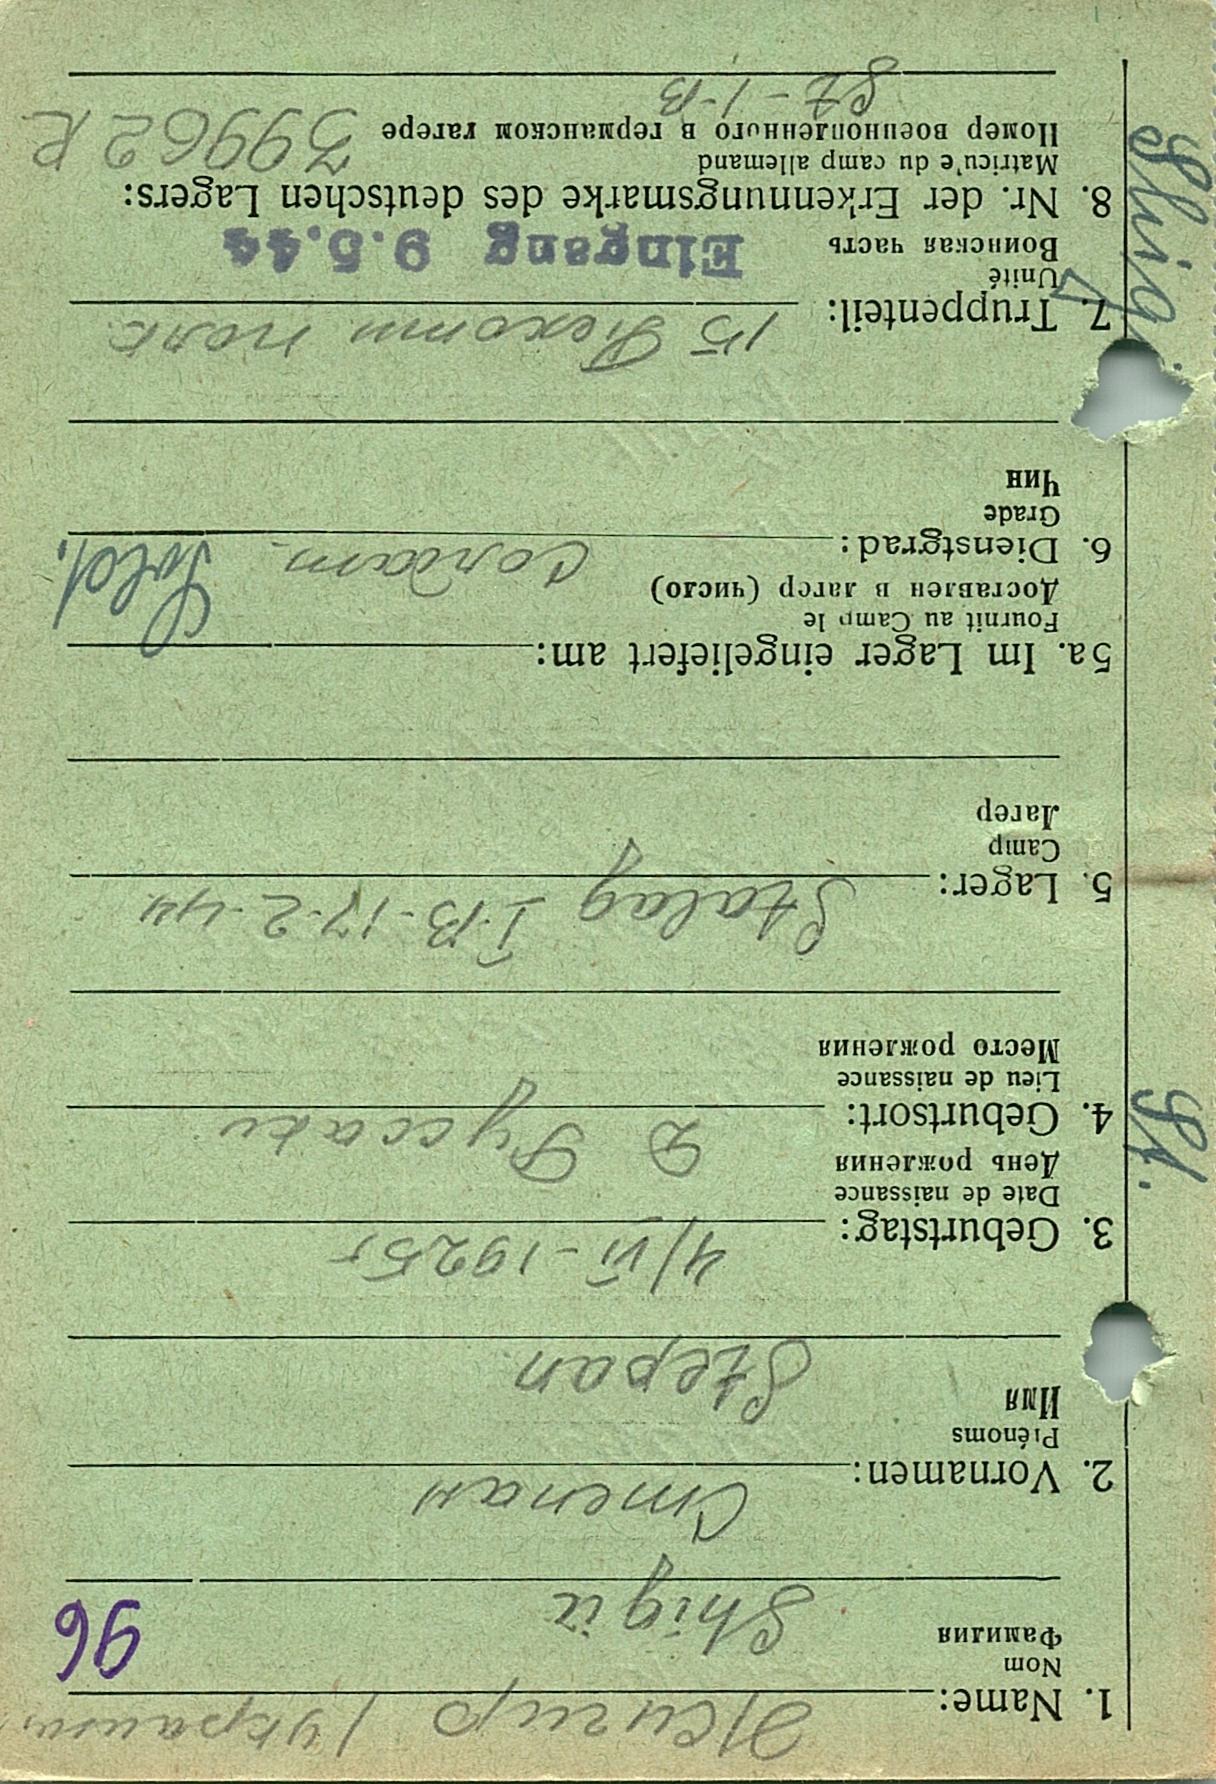 1. Name: Жигир / украин
Nom
Фамилия
Shigir
96
2. Vornamen: Степан
Prénoms
Имя
Stepan
3. Geburtstag: 4/VI-1925г
Date de naissance
День рождения
4. Geburtsort: д
Lieu de naissance
Место рождения
St.
5. Lager: Stalag I-B-17-2-44
Camp
Лагер
5a. Im Lager eingeliefert am:
Fournit au Camp le
Доставлен в лагер (число)
6. Dienstgrad: солдат. Sold.
Grade
Чин
7. Truppenteil: 15 Пехотн полк
Unité
Воинская часть
Eingang 9.5.44
8. Nr. der Erkennungsmarke des deutschen Lagers:
Matricu'e du camp allemand
Номер военнопленного в германском лагере 39962 R
St-I-B
Shigi